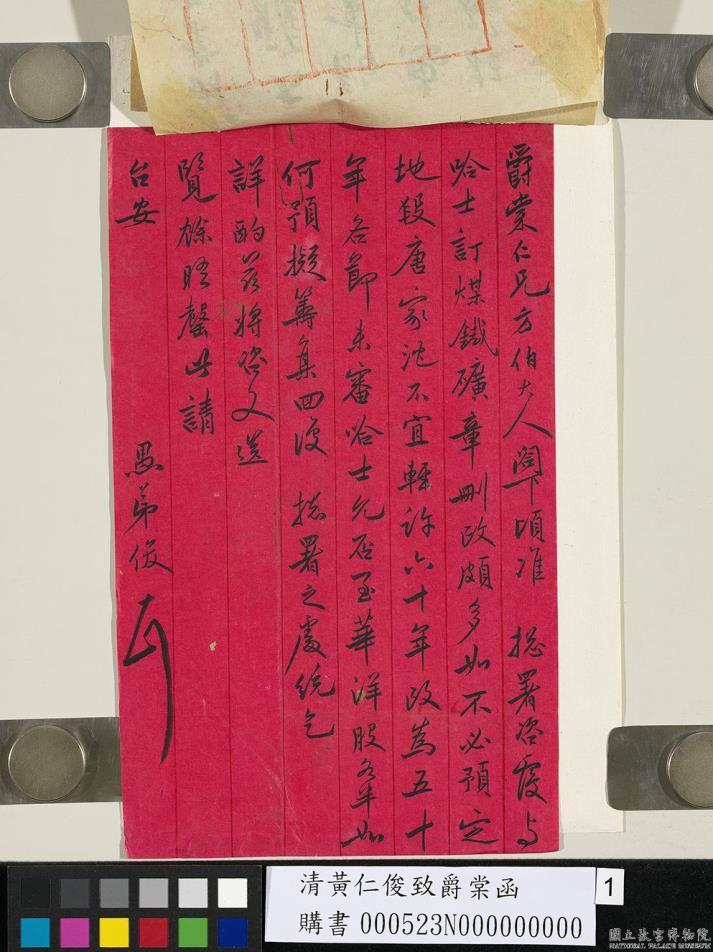 爵棠仁兄方伯大人閣下頃准　總署咨覆与
哈士訂煤鐵礦章刪改頗多如不必預定
地段唐家沱不宜輕許六十年改為五十
年各節未審哈士允否至華洋股各半如
何預擬籌集回復　總署之處統乞
詳酌茲將咨文送
覽餘晤罄此請
台安
愚弟俊
清黃仁俊致爵棠函
購書 000523N000000000
1
國立故宮博物院
NATIONAL PALACE MUSEUM